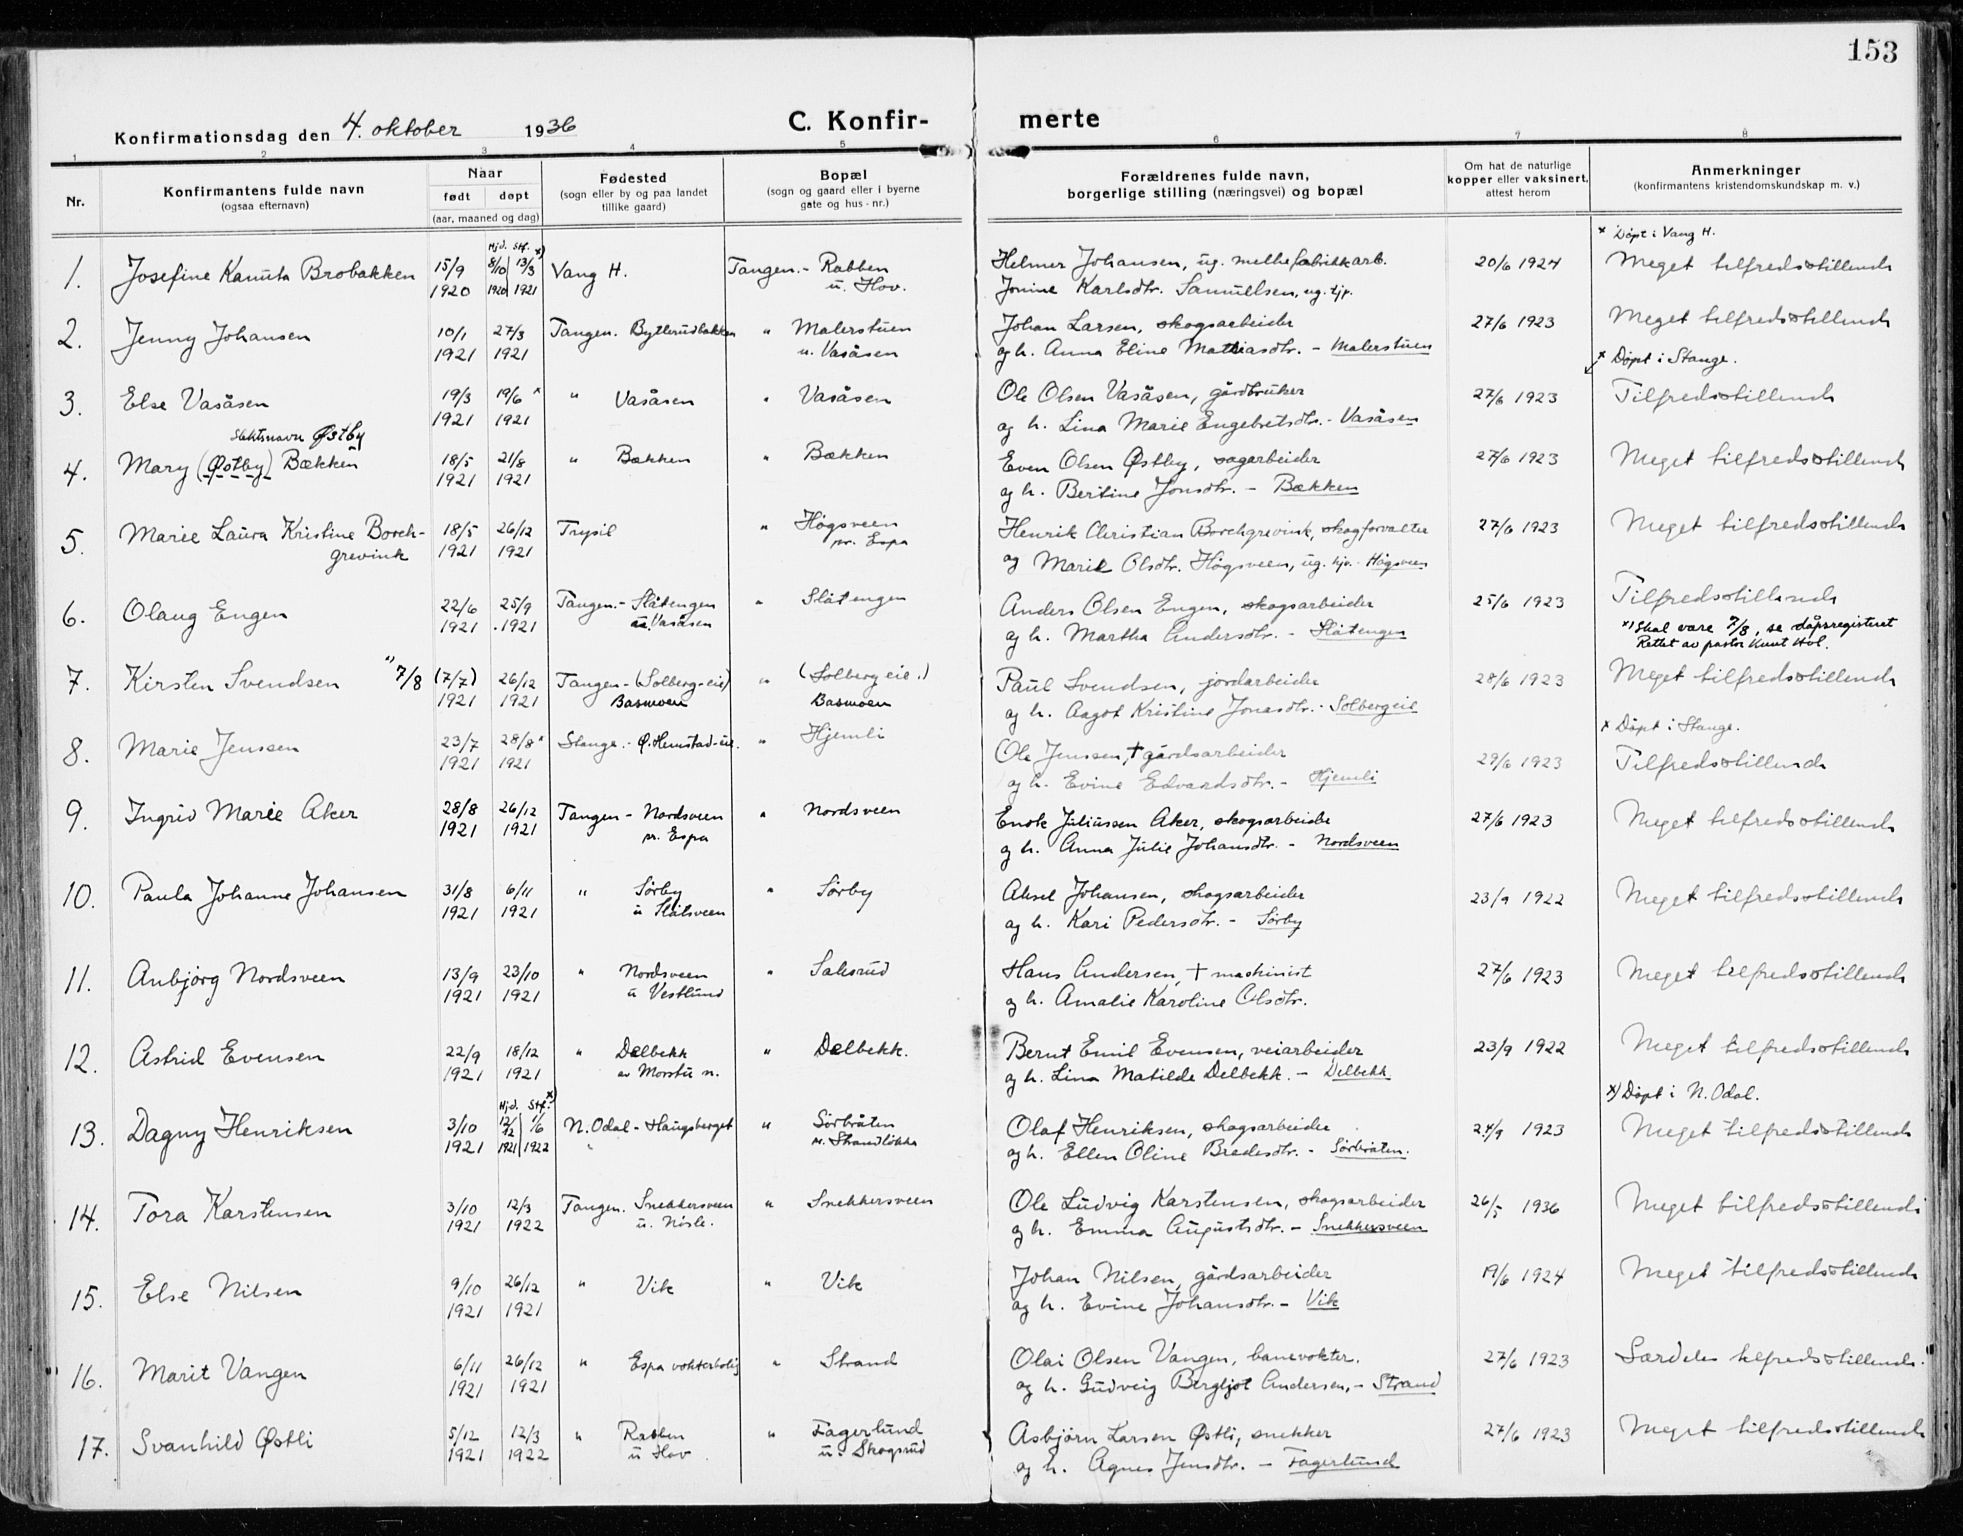 153
Konfirmationsdag den 4. oktober 1936
C. Konfirmerte
1 2 3 4 5 6 7 8
Nr.
Konfirmantens fulde navn
(ogsaa efternavn)
Naar
født døpt
(aar, maaned og dag)
Fødested
(sogn eller by og paa landet
tillike gaard)
Bopæl
(sogn og gaard eller i byerne
gate og hus-nr.)
Forældrenes fulde navn,
borgerlige stilling (næringsvei) og bopæl
Om hat de naturlige
kopper eller vaksinert,
attest herom
Anmerkninger
(konfirmantens kristendomskundskap m. v.)
Hjd. Stf. x) x Døpt i Vang H.
1. Josefine Kanuta Brobakken 15/9 8/10 13/3 Vang H. Tangen. - Rabben Helmer Johansen, ug. mellefabrikkarb. 20/6 1924 Meget tilfredsstillende
1920 1920 1921 u. Hov. Jonine Karlsdtr. Samuelsen, ug. tjp.
2. Jenny Johansen 10/1 27/3 Tangen. Bytlerudbakken " Malerstuen Johan Larsen, skogsarbeider 27/6 1923 Meget tilfredsstillende
1921 1921 u. Vasåsen og h. Anna Eline Mathiasdtr. - Malerstuen
x Døpt i Stange.
3. Else Vasåsen 19/3 19/6 x " Vasåsen " Vasåsen Ole Olsen Vasåsen, gårdbruker 27/6 1923 Tilfredsstillende
1921 1921 og h. Lina Marie Engebretsdtr. - Vasåsen
slektsnavn Østby
4. Mary (Østby) Bækken 18/5 21/8 " Bækken " Bækken Even Olsen Østby, sagarbeider 27/6 1923 Meget tilfredsstillende
1921 1921 og h. Bertine Jonsdtr. - Bækken
5. Marie Laura Kristine Borch- 18/5 26/12 Trysil " Høgsveen Henrik Christian Borchgrevink, skogforvalter 27/6 1923 Meget tilfredsstillende
grevink 1921 1921 pr. Espa og Marie Olsdtr. Høgsveen, ug. tjp. Høgsveen
6. Olaug Engen 22/6 25/9 Tangen. - Slåtengen " Slåtengen Anders Olsen Engen, skogsarbeider 25/6 1923 Tilfredsstillende
1921 1921 u. Vasåsen og h. Martha Andersdtr. - Slåtengen
x) Skal være 7/8, se dåpsregisteret
Rettet av pastor Knut Hol.
7. Kirsten Svendsen x) 7/8 (7/7) 26/12 Tangen - (Solberg-eie) " (Solberg eie.) Paul Svendsen, jordarbeider 28/6 1923 Meget tilfredsstillende
1921 1921 Basmoen Basmoen og h. Aagot Kristine Jonasdtr. - Solbergeie
x Døpt i Stange.
8. Marie Jenssen 23/7 28/8 x Stange. - Ø. Hemstad-eie. " Hjemli Ole Jenssen, † gårdsarbeider 29/6 1923 Tilfredsstillende
1921 1921 og h. Evine Edvardsdtr. - Hjemli
9. Ingrid Marie Aker 28/8 26/12 Tangen - Nordsveen " Nordsveen Enok Juliussen Aker, skogsarbeider 27/6 1923 Meget tilfredsstillende
1921 1921 pr. Espa og h. Anna Julie Johansdtr. - Nordsveen
10. Paula Johanne Johansen 31/8 6/11 " Sørby " Sørby Aksel Johansen, skogsarbeider 23/9 1922 Meget tilfredsstillende
1921 1921 u Slåtsveen og h. Kari Pedersdtr. - Sørby
11. Anbjørg Nordsveen 13/9 23/10 " Nordsveen " Saksrud Hans Andersen, † maskinist 27/6 1923 Meget tilfredsstillende
1921 1921 u Vestlund og h. Amalie Karoline Olsdtr.
12. Astrid Evensen 22/9 18/12 " Delbekk " Delbekk. Bernt Emil Evensen, veiarbeider 23/9 1922 Meget tilfredsstillende
1921 1921 av Morstu n. og h. Lina Matilde Delbekk. - Delbekk
Hjd. Stf. x) x) Døpt i N. Odal.
13. Dagny Henriksen 3/10 12/12 1/6 N. Odal - Haugsberget " Sørbråten Olaf Henriksen, skogsarbeider 24/9 1923 Meget tilfredsstillende
1921 1921 1922 " n. Strandløkka og h. Ellen Oline Bredesdtr. - Sørbråten.
14. Tora Karstensen 3/10 12/3 Tangen. Snekkersveen " Snekkersveen Ole Ludvig Karstensen, skogsarbeider 26/5 1936 Meget tilfredsstillende
1921 1922 u. Nøsle. og h. Emma Augustsdtr. - Snekkersveen
15. Else Nilsen 9/10 26/12 " Vik " Vik Johan Nilsen, gårdsarbeider 19/6 1924 Meget tilfredsstillende
1921 1921 og h. Evine Johansdtr. - Vik
16. Marit Vangen 6/11 26/12 " Espa vokterbolig " Strand Olai Olsen Vangen, banevokter. 27/6 1923 Særdeles tilfredsstillende.
1921 1921 og h. Gudveig Bergljot Andersen, - Strand
17. Svanhild Østli 5/12 12/3 " Rabben " Fagerlund Asbjørn Larsen Østli, snekker 27/6 1923 Meget tilfredsstillende
1921 1922 u Hov u. Skogsrud og h. Agnes Jensdtr. - Fagerlund